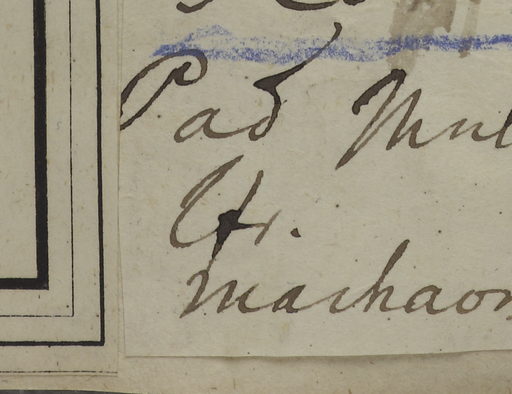 Pad Mul
Cfr.
machaon